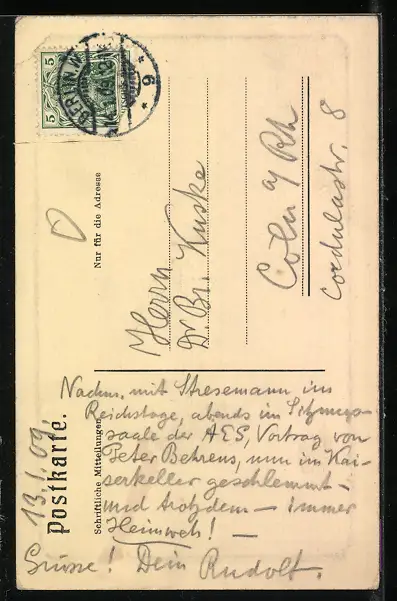 5 5
BERLIN W
* 9 *
Postkarte.
Nur für die Adresse
Schriftliche Mitteilungen
Herrn
Dr. Br. Kuske
Coln a/Rh
Cordulastr. 8
13.1.09.
Nachm. mit Stresemann im
Reichstage, abends im Sitzungs-
saale der AEG, Vortrag von
Peter Behrens, nun im Kai-
serkeller geschlemmt –
und trotzdem – immer
Heimweh! –
Grüsse! Dein Rudolf.